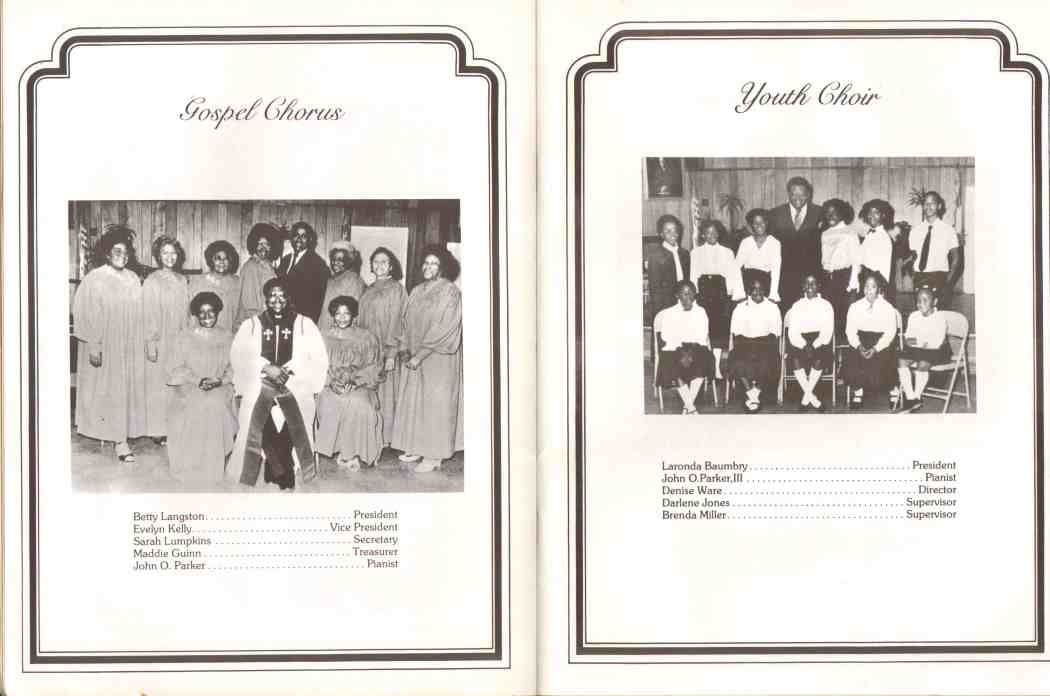 Gospel Chorus
Betty Langston.......................... President
Evelyn Kelly........................ Vice President
Sarah Lumpkins ........................ Secretary
Maddie Guinn .......................... Treasurer
John O. Parker ............................ Pianist
Youth Choir
Laronda Baumbry............................ President
John O.Parker,III ............................... Pianist
Denise Ware.................................. Director
Darlene Jones.............................. Supervisor
Brenda Miller............................... Supervisor